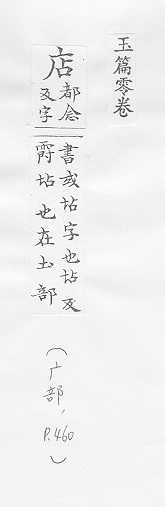 玉篇零卷
店
都念
反字
書或坫字也坫反
爵坫也在土部
(广部, P.460)